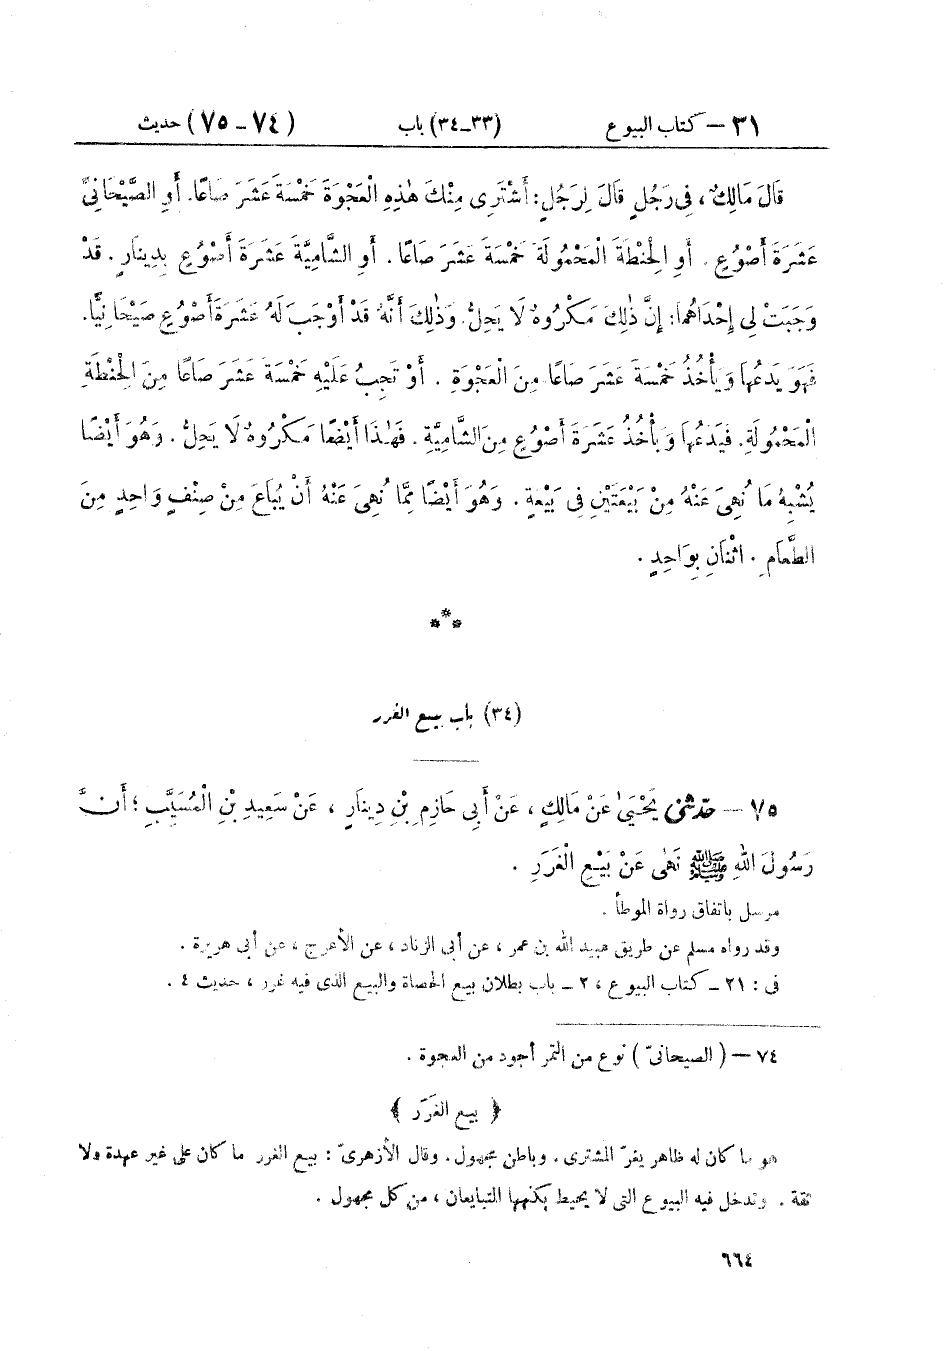 ٣١ – كتاب البيوع (٣٣-٣٤) باب (٧٤-٧٥) حديث
قَالَ مَالِكٌ ، فِى رَجُلٍ قَالَ لِرَجُلٍ : أَشْتَرِى مِنْكَ هٰذِهِ الْعَجْوَةَ خَمْسَةَ عَشَرَ صَاعًا. أَوِ الصَّيْحَانِىَّ
عَشَرَةَ أَصْوُعٍ . أَوِ الْحِنْطَةَ الْمَحْمُولَةَ خَمْسَةَ عَشَرَ صَاعًا . أَوِ الشَّامِيَّةَ عَشَرَةَ أَصْوُعٍ بِدِينَارٍ . قَدْ
وَجَبَتْ لِى إِحْدَاهُمَا : إِنَّ ذٰلِكَ مَكْرُوهٌ لَا يَحِلُّ. وَذٰلِكَ أَنَّهُ قَدْ أَوْجَبَ لَهُ عَشَرَةَ أَصْوُعٍ صَيْحَانِيًّا.
فَهُوَ يَدَعُهَا وَيَأْخُذُ خَمْسَةَ عَشَرَ صَاعًا مِنَ الْعَجْوَةِ . أَوْ تَجِبُ عَلَيْهِ خَمْسَةَ عَشَرَ صَاعًا مِنَ الْحِنْطَةِ
الْمَحْمُولَةِ. فَيَدَعُهَا وَيَأْخُذُ عَشَرَةَ أَصْوُعٍ مِنَ الشَّامِيَّةِ . فَهٰذَا أَيْضًا مَكْرُوهٌ لَا يَحِلُّ . وَهُوَ أَيْضًا
يُشْبِهُ مَا نُهِىَ عَنْهُ مِنْ بَيْعَتَيْنِ فِى بَيْعَةٍ . وَهُوَ أَيْضًا مِمَّا نُهِىَ عَنْهُ أَنْ يُبَاعَ مِنْ صِنْفٍ وَاحِدٍ مِنَ
الطَّعَامِ . اثْنَانِ بِوَاحِدٍ .
***
(٣٤) باب بيع الغرر
٧٥ – حدّثنى يَحْيَىٰ عَنْ مَالِكٍ ، عَنْ أَبِى حَازِمِ بْنِ دِينَارٍ ، عَنْ سَعِيدِ بْنِ الْمُسَيَّبِ ؛ أَنَّ
رَسُولَ اللهِ ﷺ نَهٰى عَنْ بَيْعِ الْغَرَرِ .
مرسل باتفاق رواة الموطأ .
وقد رواه مسلم عن طريق عبيد الله بن عمر ، عن أبى الزناد ، عن الأعرج ، عن أبى هريرة .
فى : ٢١ – كتاب البيوع ، ٢ – باب بطلان بيع الحصاة والبيع الذى فيه غرر ، حديث ٤ .
٧٤ – ( الصيحانىّ ) نوع من التمر أجود من العجوة .
﴿ بيع الغَرَر ﴾
هو ما كان له ظاهر يغرّ المشترى . وباطن مجهول . وقال الأزهرىّ : بيع الغرر ما كان على غير عهدة ولا
ثقة . وتدخل فيه البيوع التى لا يحيط بكنهها المتبايعان ، من كل مجهول .
٦٦٤